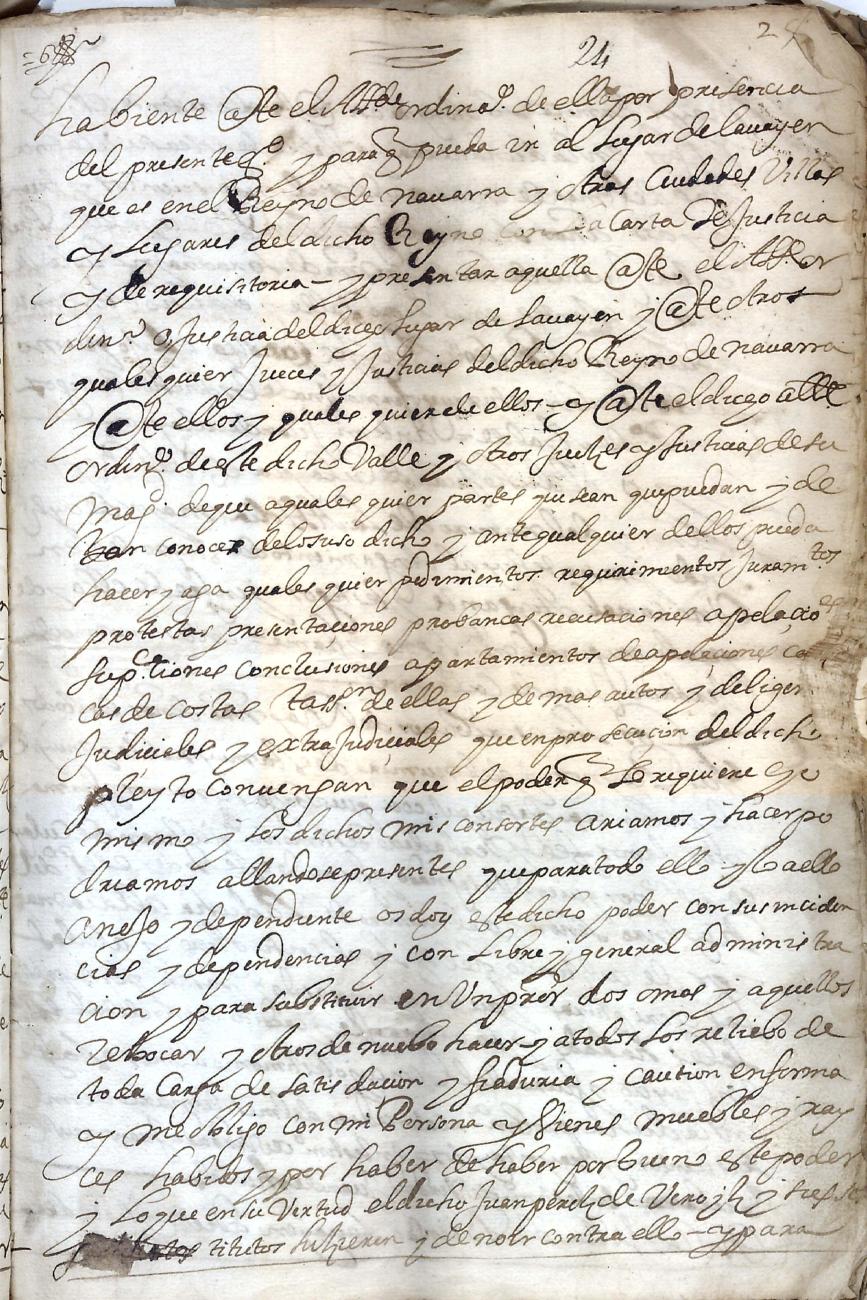 24
habiente @te el Allde ordinaº de ella por presencia
del presente esº y para q pueda ir al lugar de lavayen
que es en el Reyno de navarra y otras Ciudades Villas
y lugares del dicho Reyno con la Carta De Justicia
y de requisitoria – y presentar aquella @te el Allde or
dinº o Justicia del dicho lugar de lavayen y @te otros
quales quier Jueces y Justicias del dicho Reyno de navarra
y @te ellos y quales quier de ellos – y @te el dicho allde
ordinº de este dicho Valle y otros Juezes y Justicias de su
Magd de que a quales quier partes que sean que puedan y de
ban conocer de lo suso dicho y ante qual quier dellos pueda
hacer y aga quales quier pedimientos requirimientos Juramtos
protestas presentaciones probancas recusaciones apelacio
suplCtiones conclusiones apartamientos de apelaciones
cas de costas tassn de ellas y de mas autos y deligen
Judiciales y extra Judiciales que en prosecucion del dicho
pleyto convengan que el poder q se requiere e yo
mismo y los dichos mis consortes ariamos y hacer po
driamos allandose presentes que para todo ello y a ello
anejo y dependiente os doy este dicho poder con sus inciden
cias y dependencias y con libre y general administra
cion y para substituir en Un pror dos o mas y aquellos
Rebocar y otros de nuebo hacer – y a todos los reliebo de
toda Carga de satisdacion y fiaduria y caution en forma
y me obligo con mi Persona y bienes muebles y ray
ces habidos y por haber de haber por bueno este poder
y lo que en su Vertud el dicho Juan perez de Vero y sus
titutos hizieren y de no ir contra ello – y para